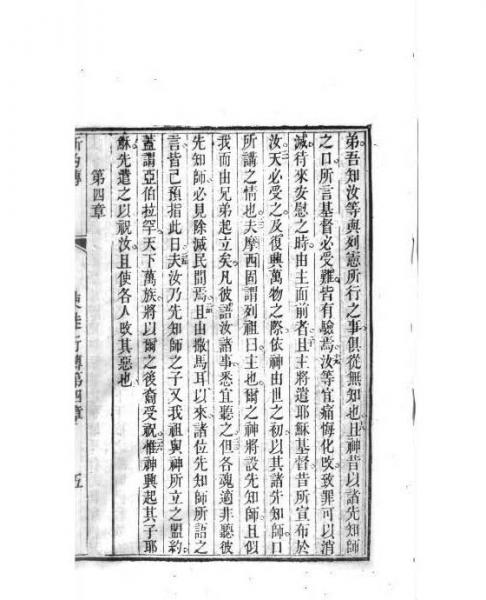 弟吾知汝等與列憲所行之事俱從無知也且神昔以諸先知師
之口所言基督必受難皆有驗焉汝等宜痛悔化改致罪可以消
滅待來安慰之時由主面前者且主將遣耶穌基督昔所宣布於
汝天必受之及復興萬物之際依神由世之初以其諸先知師口
所講之情也夫摩西固謂列祖曰主也爾之神將設先知師且似
我而由兄弟起立矣凡彼謡汝諸事悉宜聽之但各魂適非聽彼
先知師必見除滅民間焉且由撒馬耳以來諸位先知師所語之
言皆已預指此日夫汝乃先知師之子又我祖與神所立之盟約
蓋謂亞伯拉罕天下萬族將以爾之後裔受祝惟神興起其子耶
穌先遣之以祝汝且使各人改其惡也
第四章
傳第四章
五